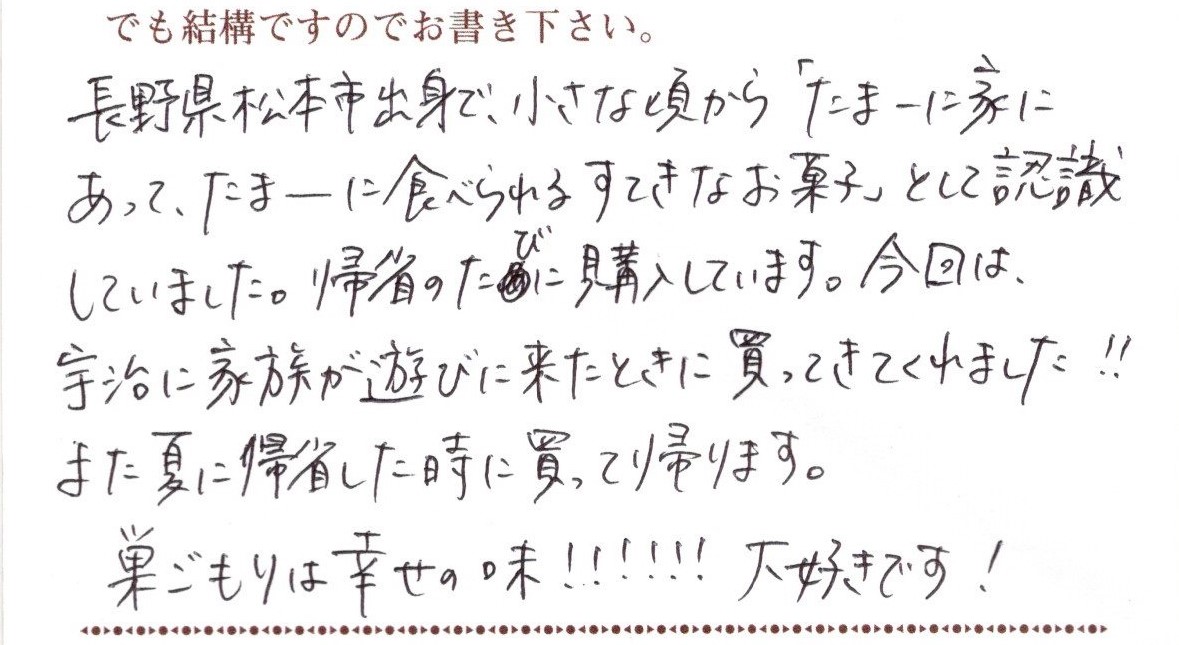 でも結構ですのでお書き下さい。
長野県松本市出身で、小さな頃から「たまーに家に
あって、たまーに食べられるすてきなお菓子」として認識
していました。帰省のたびに購入しています。今回は、
宇治に家族が遊びに来たときに買ってきてくれました!!
また夏に帰省した時に買って帰ります。
巣ごもりは幸せの味!!!!!! 大好きです!